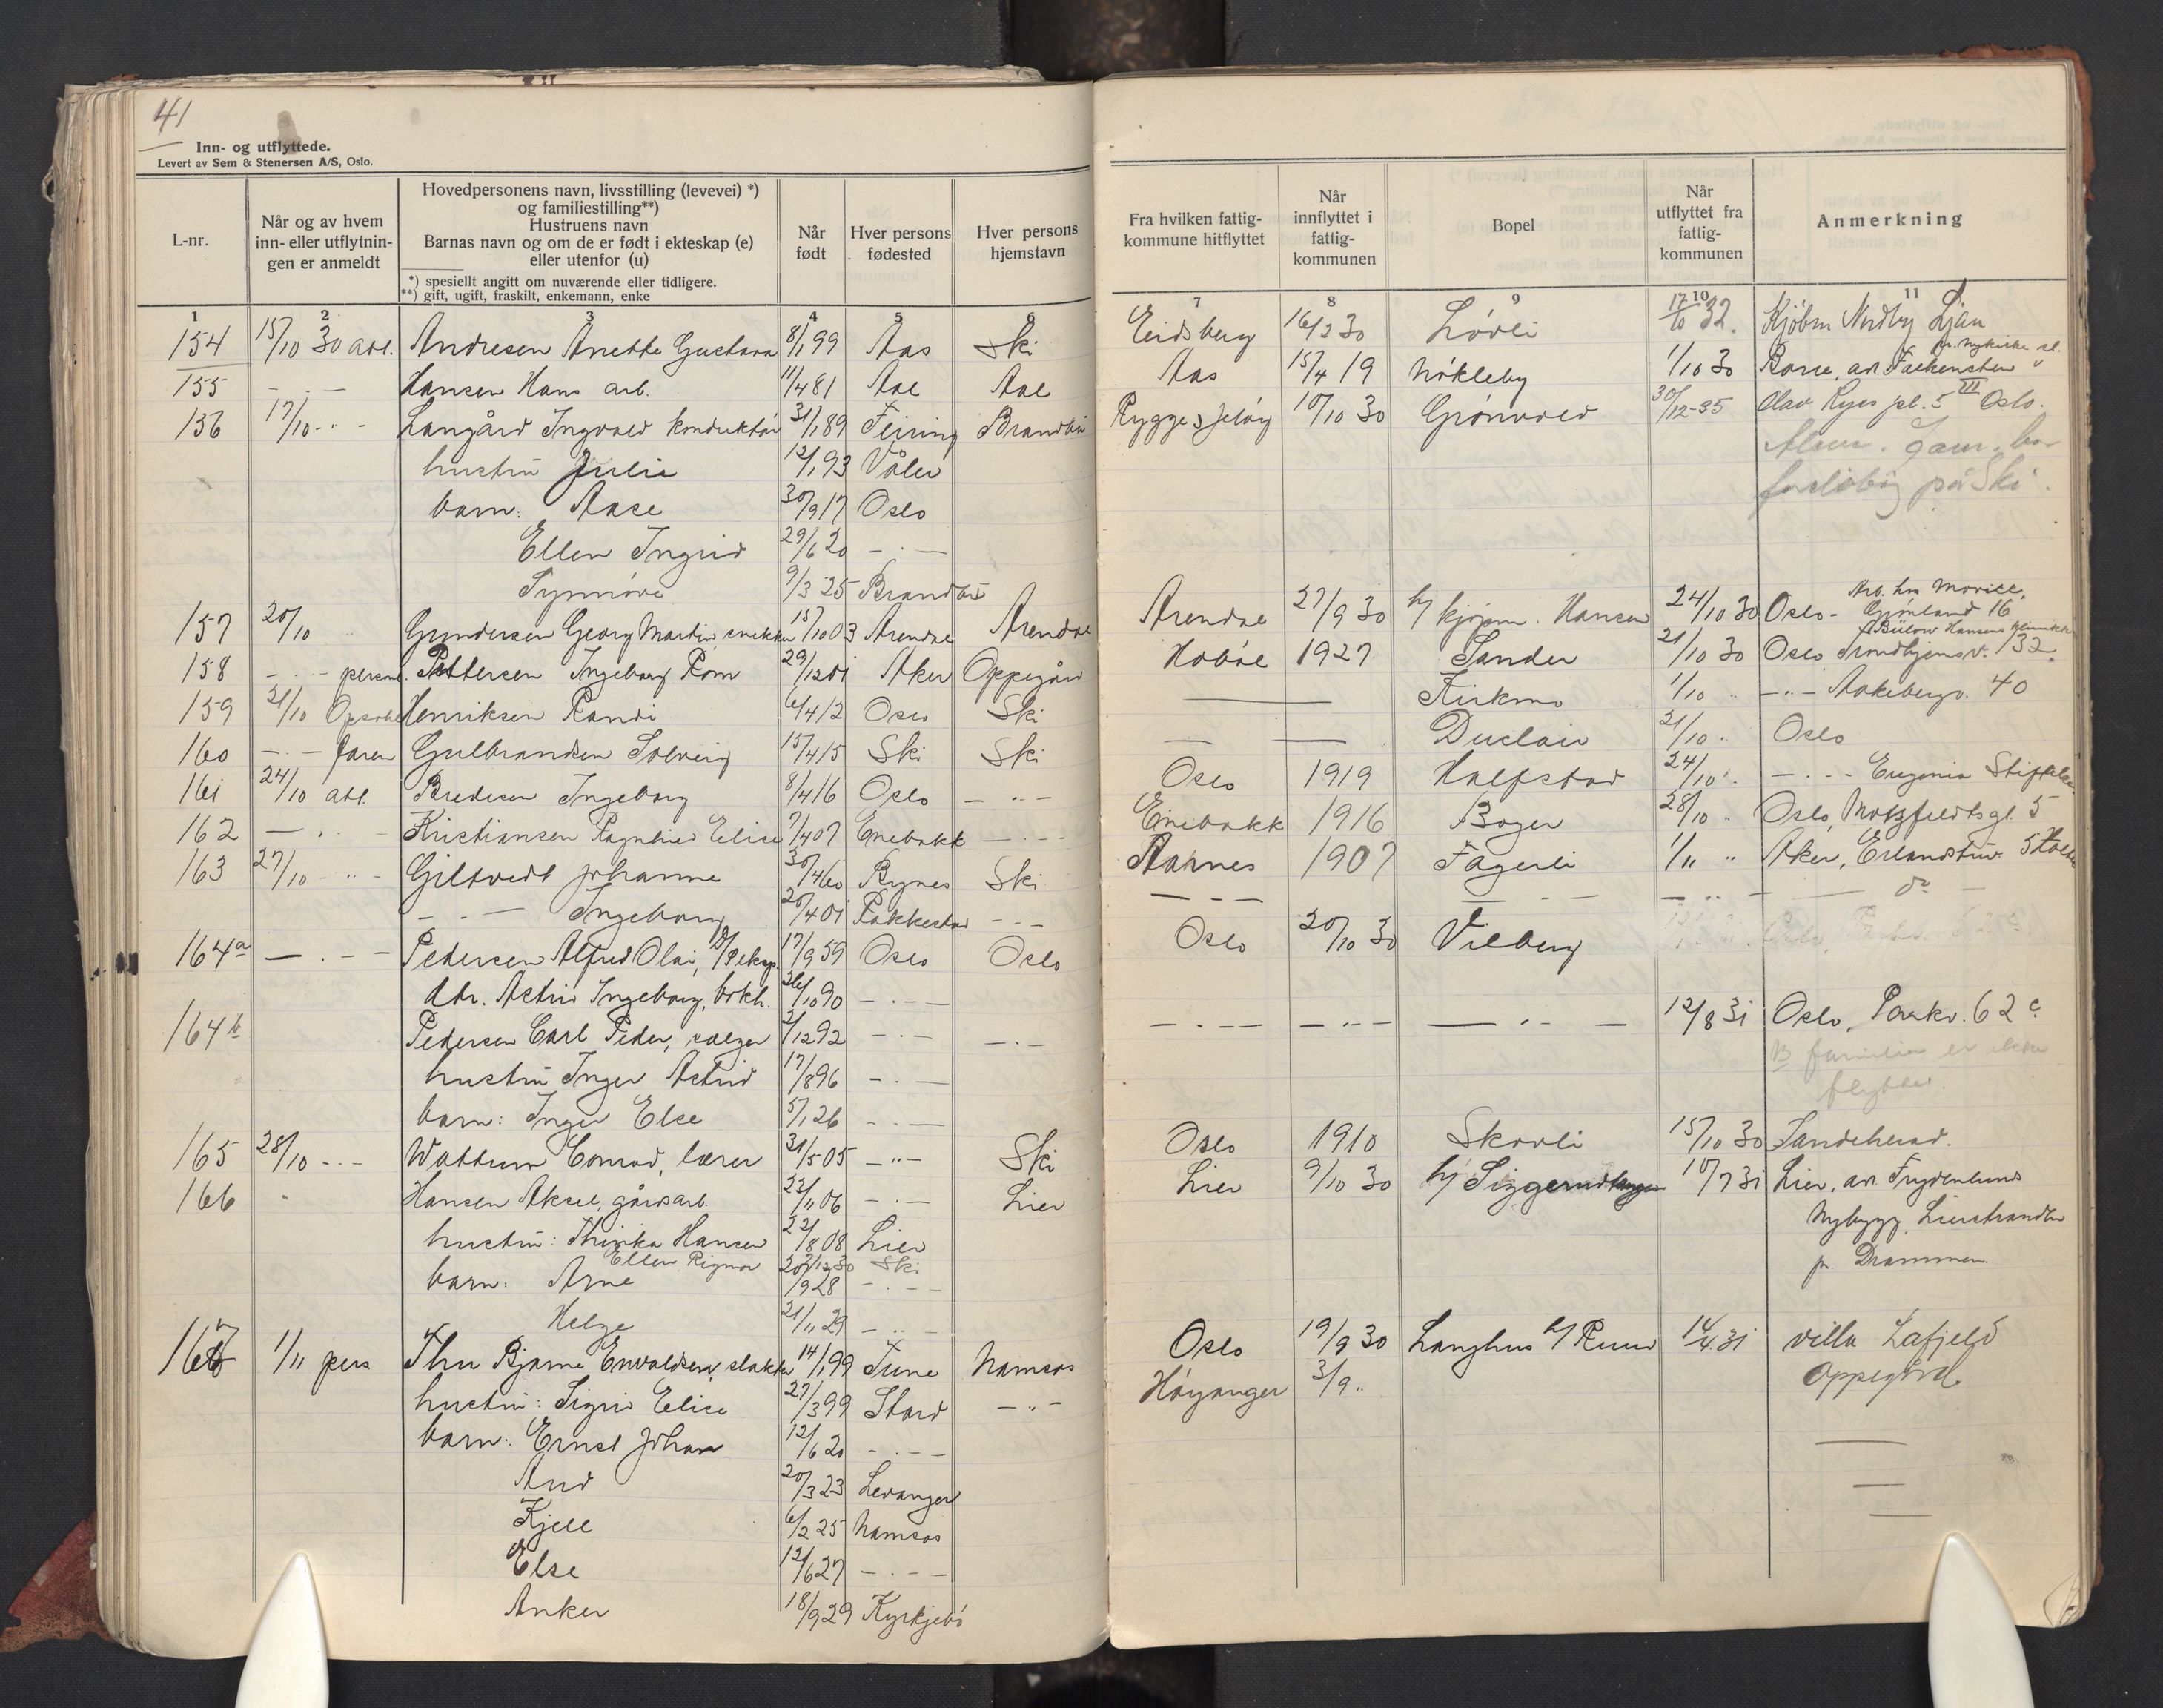 41
Inn- og utflyttede.
Levert av Sem & Stenersen A/S, Oslo.
L-nr.
Når og av hvem inn- eller utflytnin-gen er anmeldt
Hovedpersonens navn, livsstilling (levevei) *)
og familiestilling**)
Hustruens navn
Barnas navn og om de er født i ekteskap (e)
eller utenfor (u)
*) spesielt angitt om nuværende eller tidligere.
**) gift, ugift, fraskilt, enkemann, enke
Når født
Hver persons fødested
Hver persons hjemstavn
Fra hvilken fattig-kommune hitflyttet
Når innflyttet i fattig-kommunen
Bopel
Når utflyttet fra fattig-kommunen
Anmerkning
1 2 3 4 5 6 7 8 9 10 11
154 15/10 30 Andresen Anette Gustava 8/1 99 Aas Ski Eidsberg 16/2 30 Løvli 17/10 32. Kjøbm Nordby Ljan
155 - . - Hansen Hans arb. 11/4 81 Aal Aal Aas 15/4 19 Nökleby 1/10 30 Falkensten
156 17/10 - " - Langård Ingvald konduktör 31/1 89 Feiring Brandbu Rygge, Jeløy 10/10 30 Grönvold 30/12-35 Olav Ryes pl. 5 III Oslo.
hustru Julie 12/1 93 Våler
foreløbig på Ski.
barn: Aase 30/9 17 Oslo
Ellen Ingrid 29/6 20 - . -
Synnöve 9/3 25 Brandbu
157 20/10 Gundersen Georg Martin, snekker 15/10 03 Arendal Arendal Arendal 27/9 30 h/ kjøpm. Hansen 24/10 30 Oslo - Grönland 16
158 - . - personl. Pettersen Ingeborg Rom 29/12 01 Aker Oppegård Hobøl 1927 Sander 21/10 30 Oslo Trondhjemsv. 132
159 21/10 Henriksen Randi 6/4 12 Oslo Ski — Kirkmo 1/10 " - " - Aakebergv. 40
160 - . - faren Gulbrandsen Solveig 15/4 15 Ski Ski — — Duclair 21/10 " Oslo
161 24/10 Bredesen Ingeborg 8/4 16 Oslo - " - Oslo 1919 Halfstad 24/10 " - . - Eugenia Stiftelse
162 - . - Kristiansen Ragnhild Elise 7/4 07 Enebakk - . - Enebakk 1916 Boger 28/10 " Oslo, Motzfeldtsgt. 5
163 27/10 - " - Giltvedt Johanne 30/4 60 Rynes Ski Aarnes 1907 Fagerli 1/11 " Aker, Erlandstuv. 5
- . - Ingeborg 20/4 01 Rakkestad - - - . - - . - - . - - . - do
164a - . - Pedersen Alfred Olai, 17/9 59 Oslo Oslo Oslo 20/10 30 Vilberg
dtr. Astrid Ingeborg, bokh. 26/10 90 - . -
164b Pedersen Carl Peder, selger 2/12 92 - . - - . - - . - - . - - . - 12/8 31 Oslo, Parkv. 62 c
hustru Inger Astrid 17/8 96 - . -
familien er ikke
flyttet.
barn: Inger Else 5/1 26 - . -
165 28/10 - - - Wattum Conrad, lærer 31/5 05 - " - Ski Oslo 1910 Skovli 15/10 30 Sandeherad.
166 " Hansen Aksel, gårdsarb. 23/11 06 - . - Lier Lier 9/10 30 h/ Siggerud 10/7 31 Lier, Frydenlund
Nybygg. Lierstranden
pr Drammen
hustru: Thinka Hansen 22/8 08 Lier
Ellen Rigmor 20/12 30 Ski
barn: Arne 1/9 28 - . -
Helge 21/11 29 - . -
167 1/11 pers Thu Bjarne Envaldsen, slakter 14/1 99 Tune Namsos Oslo 19/9 30 Langhus h/ Ruud 14/4 31 villa Lafjeld
Oppegård
hustru: Sigrid Elise 27/3 99 Stord - " - Høyanger 3/9 "
barn: Ernst Johan 12/6 20 - . -
Aud 20/3 23 Levanger
Kjell 6/2 25 Namsos
Else 12/6 27 - . -
Anker 18/9 29 Kyrkjebø